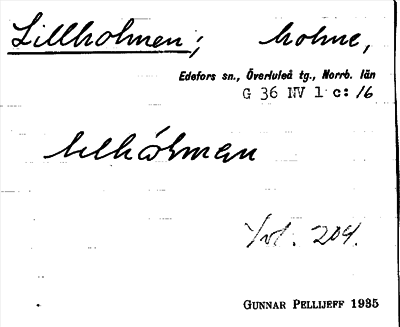 Lillholmen; holme,
Edefors sn., Överluleå tg., Norrb. län
G 36 NV 1 c: 16
lelhólmɐn
Yvl. 204.
GUNNAR PELLIJEFF 1935